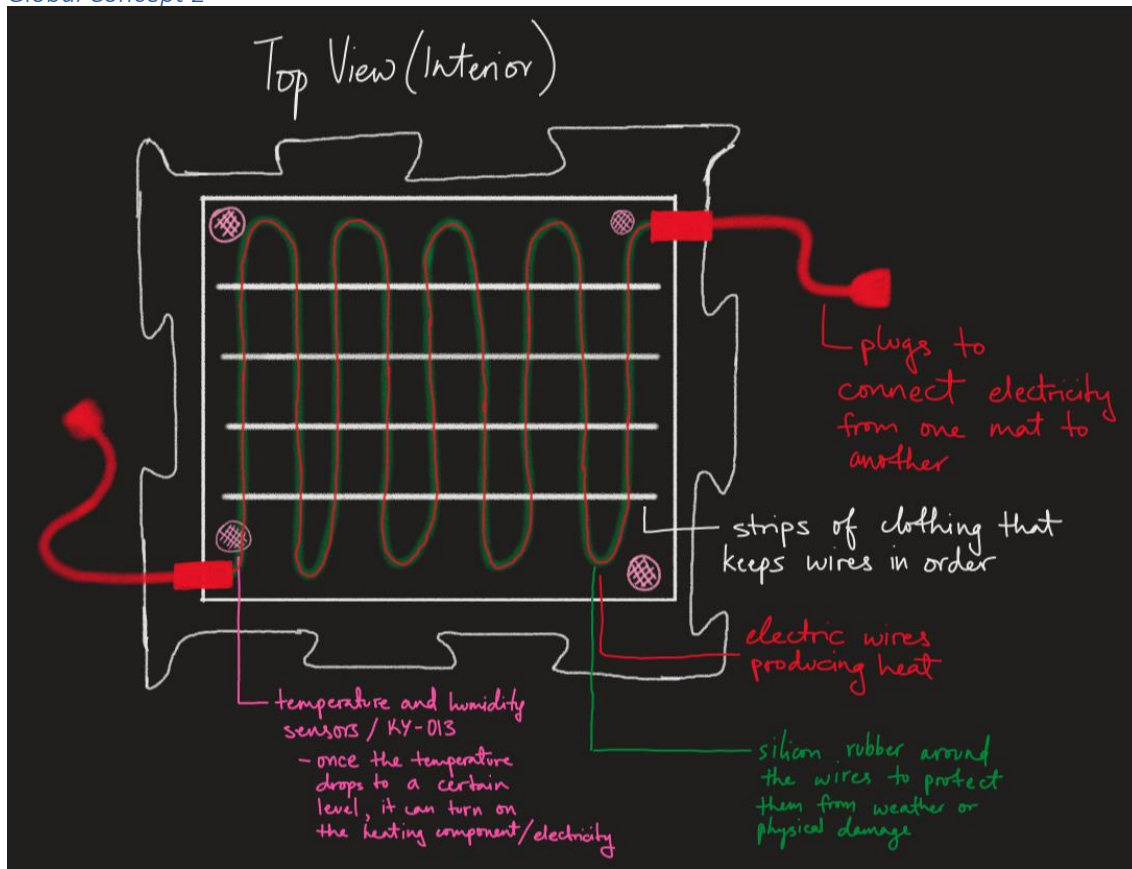 Global Concept 2
Top View (Interior)
plugs to
connect electricity
from one mat to
another
strips of clothing that
keeps wires in order
electric wires
producing heat
temperature and humidity
sensors / KY-013
- once the temperature
drops to a certain
level, it can turn on
the heating component/electricity
silicon rubber around
the wires to protect
them from weather or
physical damage